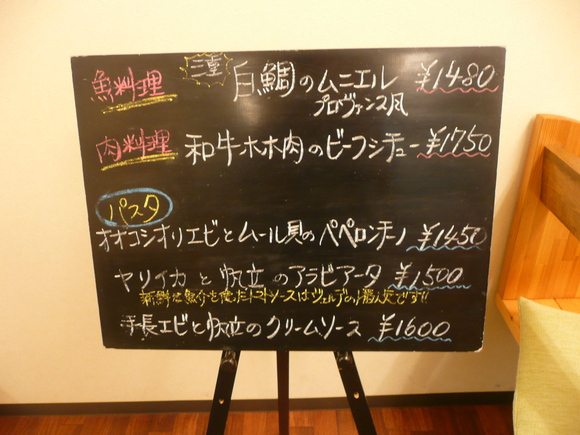 魚料理 三重 白鯛のムニエル ¥1480
プロヴァンス風
肉料理 和牛ホホ肉のビーフシチュー ¥1750
パスタ
オオコシオリエビとムール貝のペペロンチーノ ¥1450
ヤリイカと帆立のアラビアータ ¥1500
新鮮な魚介を使ったトマトソースは
手長エビと帆立のクリームソース ¥1600